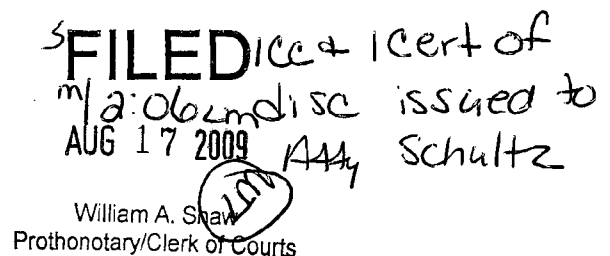 FILED 1cc & 1 Cert of
m/2:06 cm disc issued to
AUG 17 2009 Atty Schultz
William A. Shaw
Prothonotary/Clerk of Courts